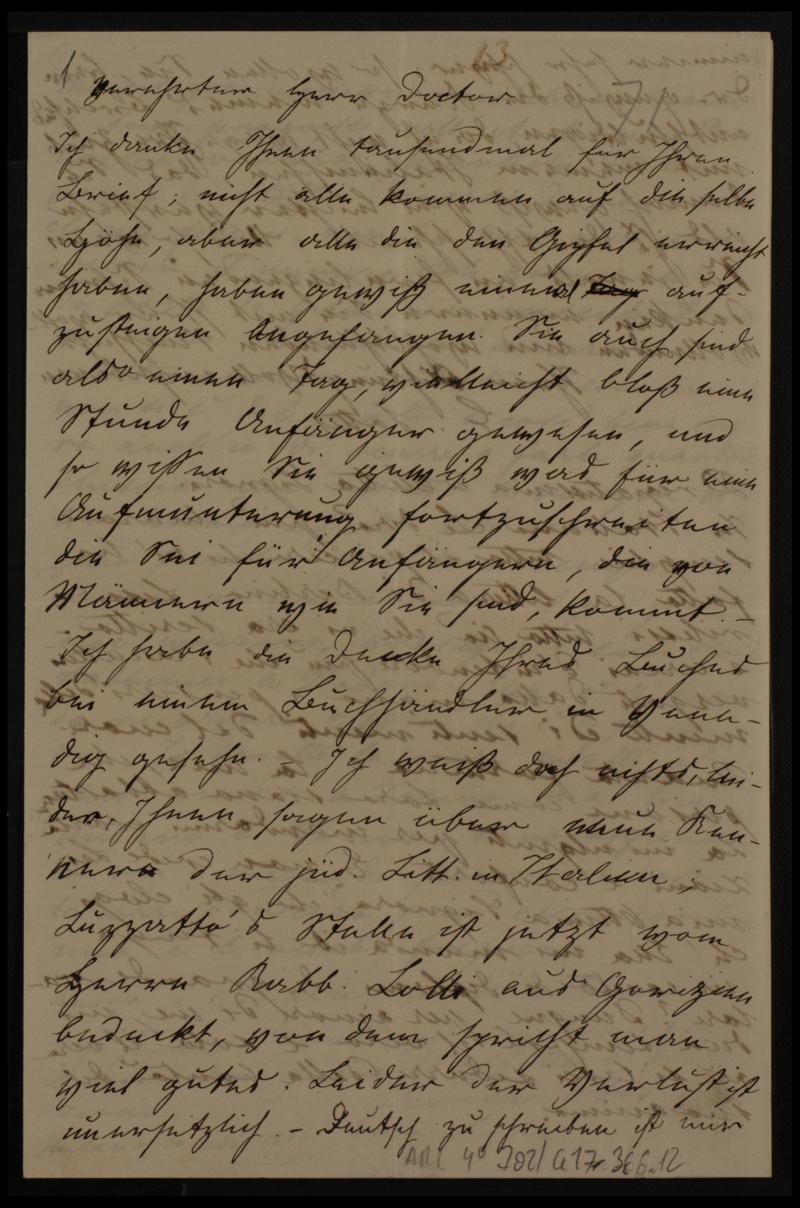 1
13
71
Verehrter Herr Doctor
Ich danke Ihnen tausendmal für Ihren
Brief; nicht alle kommen auf die selbe
Höhe, aber alle die den Gipfel erreicht
haben, haben gewiß einmal Tag auf-
zusteigen angefangen. Sie auch sind
also einen Tag, vielleicht bloß eine
Stunde Anfänger gewesen, und
so wissen Sie gewiß was für eine
Aufmunterung fortzuschreiten
die Sei für Anfängern, die von
Männern wie Sie sind, kommt. –
Ich habe die Decke Ihres Buches
bei einem Buchhändler in Vene-
dig gesehn. – Ich weiß doch nichts, lei-
der, Ihnen sagen über neue Ken-
ner der jüd. Litt. in Italien;
Luzzatto's Stelle ist jetzt vom
Herrn Rabb. Lolli aus Gorizien
bedeckt, von dem spricht man
viel gutes. Leider der Verlust ist
unersetzlich. – Deutsch zu schreiben ist mir
ARC 4° 792/G17-366.12